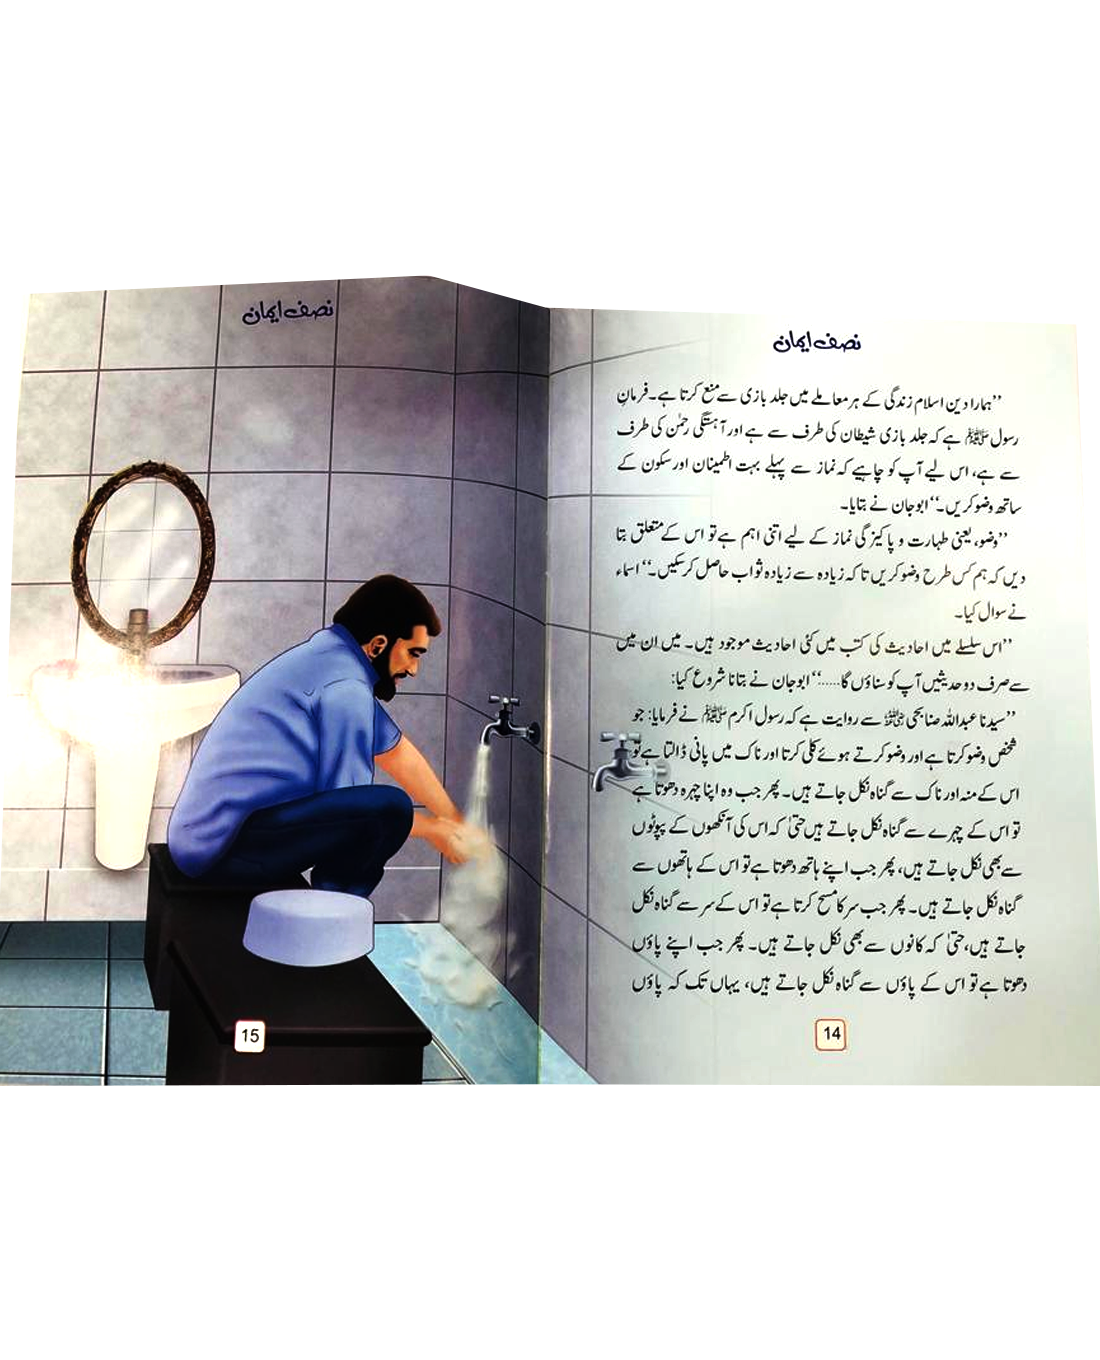 نصف ایمان
’’ہمارا دین اسلام زندگی کے ہر معاملے میں جلد بازی سے منع کرتا ہے۔ فرمانِ
رسول ﷺ ہے کہ جلد بازی شیطان کی طرف سے ہے اور آہستگی رحمٰن کی طرف
سے ہے، اس لیے آپ کو چاہیے کہ نماز سے پہلے بہت اطمینان اور سکون کے
ساتھ وضو کریں۔‘‘ ابوجان نے بتایا۔
’’وضو، یعنی طہارت و پاکیزگی نماز کے لیے اتنی اہم ہے تو اس کے متعلق بتا
دیں کہ ہم کس طرح وضو کریں تا کہ زیادہ سے زیادہ ثواب حاصل کر سکیں۔‘‘ اسماء
نے سوال کیا۔
’’اس سلسلے میں احادیث کی کتب میں کئی احادیث موجود ہیں۔ میں ان میں
سے صرف دو حدیثیں آپ کو سناؤں گا.....‘‘ ابوجان نے بتانا شروع کیا:
’’سیدنا عبداللہ صنابحی رضی اللہ عنہ سے روایت ہے کہ رسول اکرم ﷺ نے فرمایا: جو
شخص وضو کرتا ہے اور وضو کرتے ہوئے کلی کرتا اور ناک میں پانی ڈالتا ہے تو
اس کے منہ اور ناک سے گناہ نکل جاتے ہیں۔ پھر جب وہ اپنا چہرہ دھوتا ہے
تو اس کے چہرے سے گناہ نکل جاتے ہیں حتیٰ کہ اس کی آنکھوں کے پپوٹوں
سے بھی نکل جاتے ہیں، پھر جب اپنے ہاتھ دھوتا ہے تو اس کے ہاتھوں سے
گناہ نکل جاتے ہیں۔ پھر جب سر کا مسح کرتا ہے تو اس کے سر سے گناہ نکل
جاتے ہیں، حتیٰ کہ کانوں سے بھی نکل جاتے ہیں۔ پھر جب اپنے پاؤں
دھوتا ہے تو اس کے پاؤں سے گناہ نکل جاتے ہیں، یہاں تک کہ پاؤں
14
نصف ایمان
15